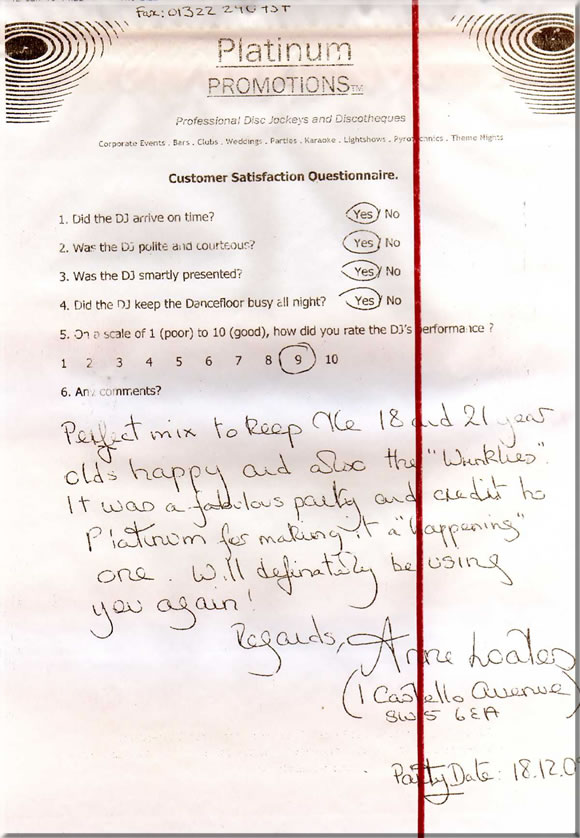 Fax: 01322 296 TST
Platinum
PROMOTIONS™
Professional Disc Jockeys and Discotheques
Corporate Events . Bars . Clubs . Weddings . Parties . Karaoke . Lightshows . Pyrotechnics . Theme Nights
Customer Satisfaction Questionnaire.
1. Did the DJ arrive on time? Yes / No
2. Was the DJ polite and courteous? Yes / No
3. Was the DJ smartly presented? Yes / No
4. Did the DJ keep the Dancefloor busy all night? Yes / No
5. On a scale of 1 (poor) to 10 (good), how did you rate the DJ's performance ?
1 2 3 4 5 6 7 8 9 10
6. Any comments?
Perfect mix to keep the 18 and 21 year
olds happy and also the "Wrinklies".
It was a fabulous party and credit to
Platinum for making it a "happening"
one. Will definately be using
you again!
Regards, Anne Loates
(1 Castello Avenue)
SW15 6EA
Party Date: 18.12.0